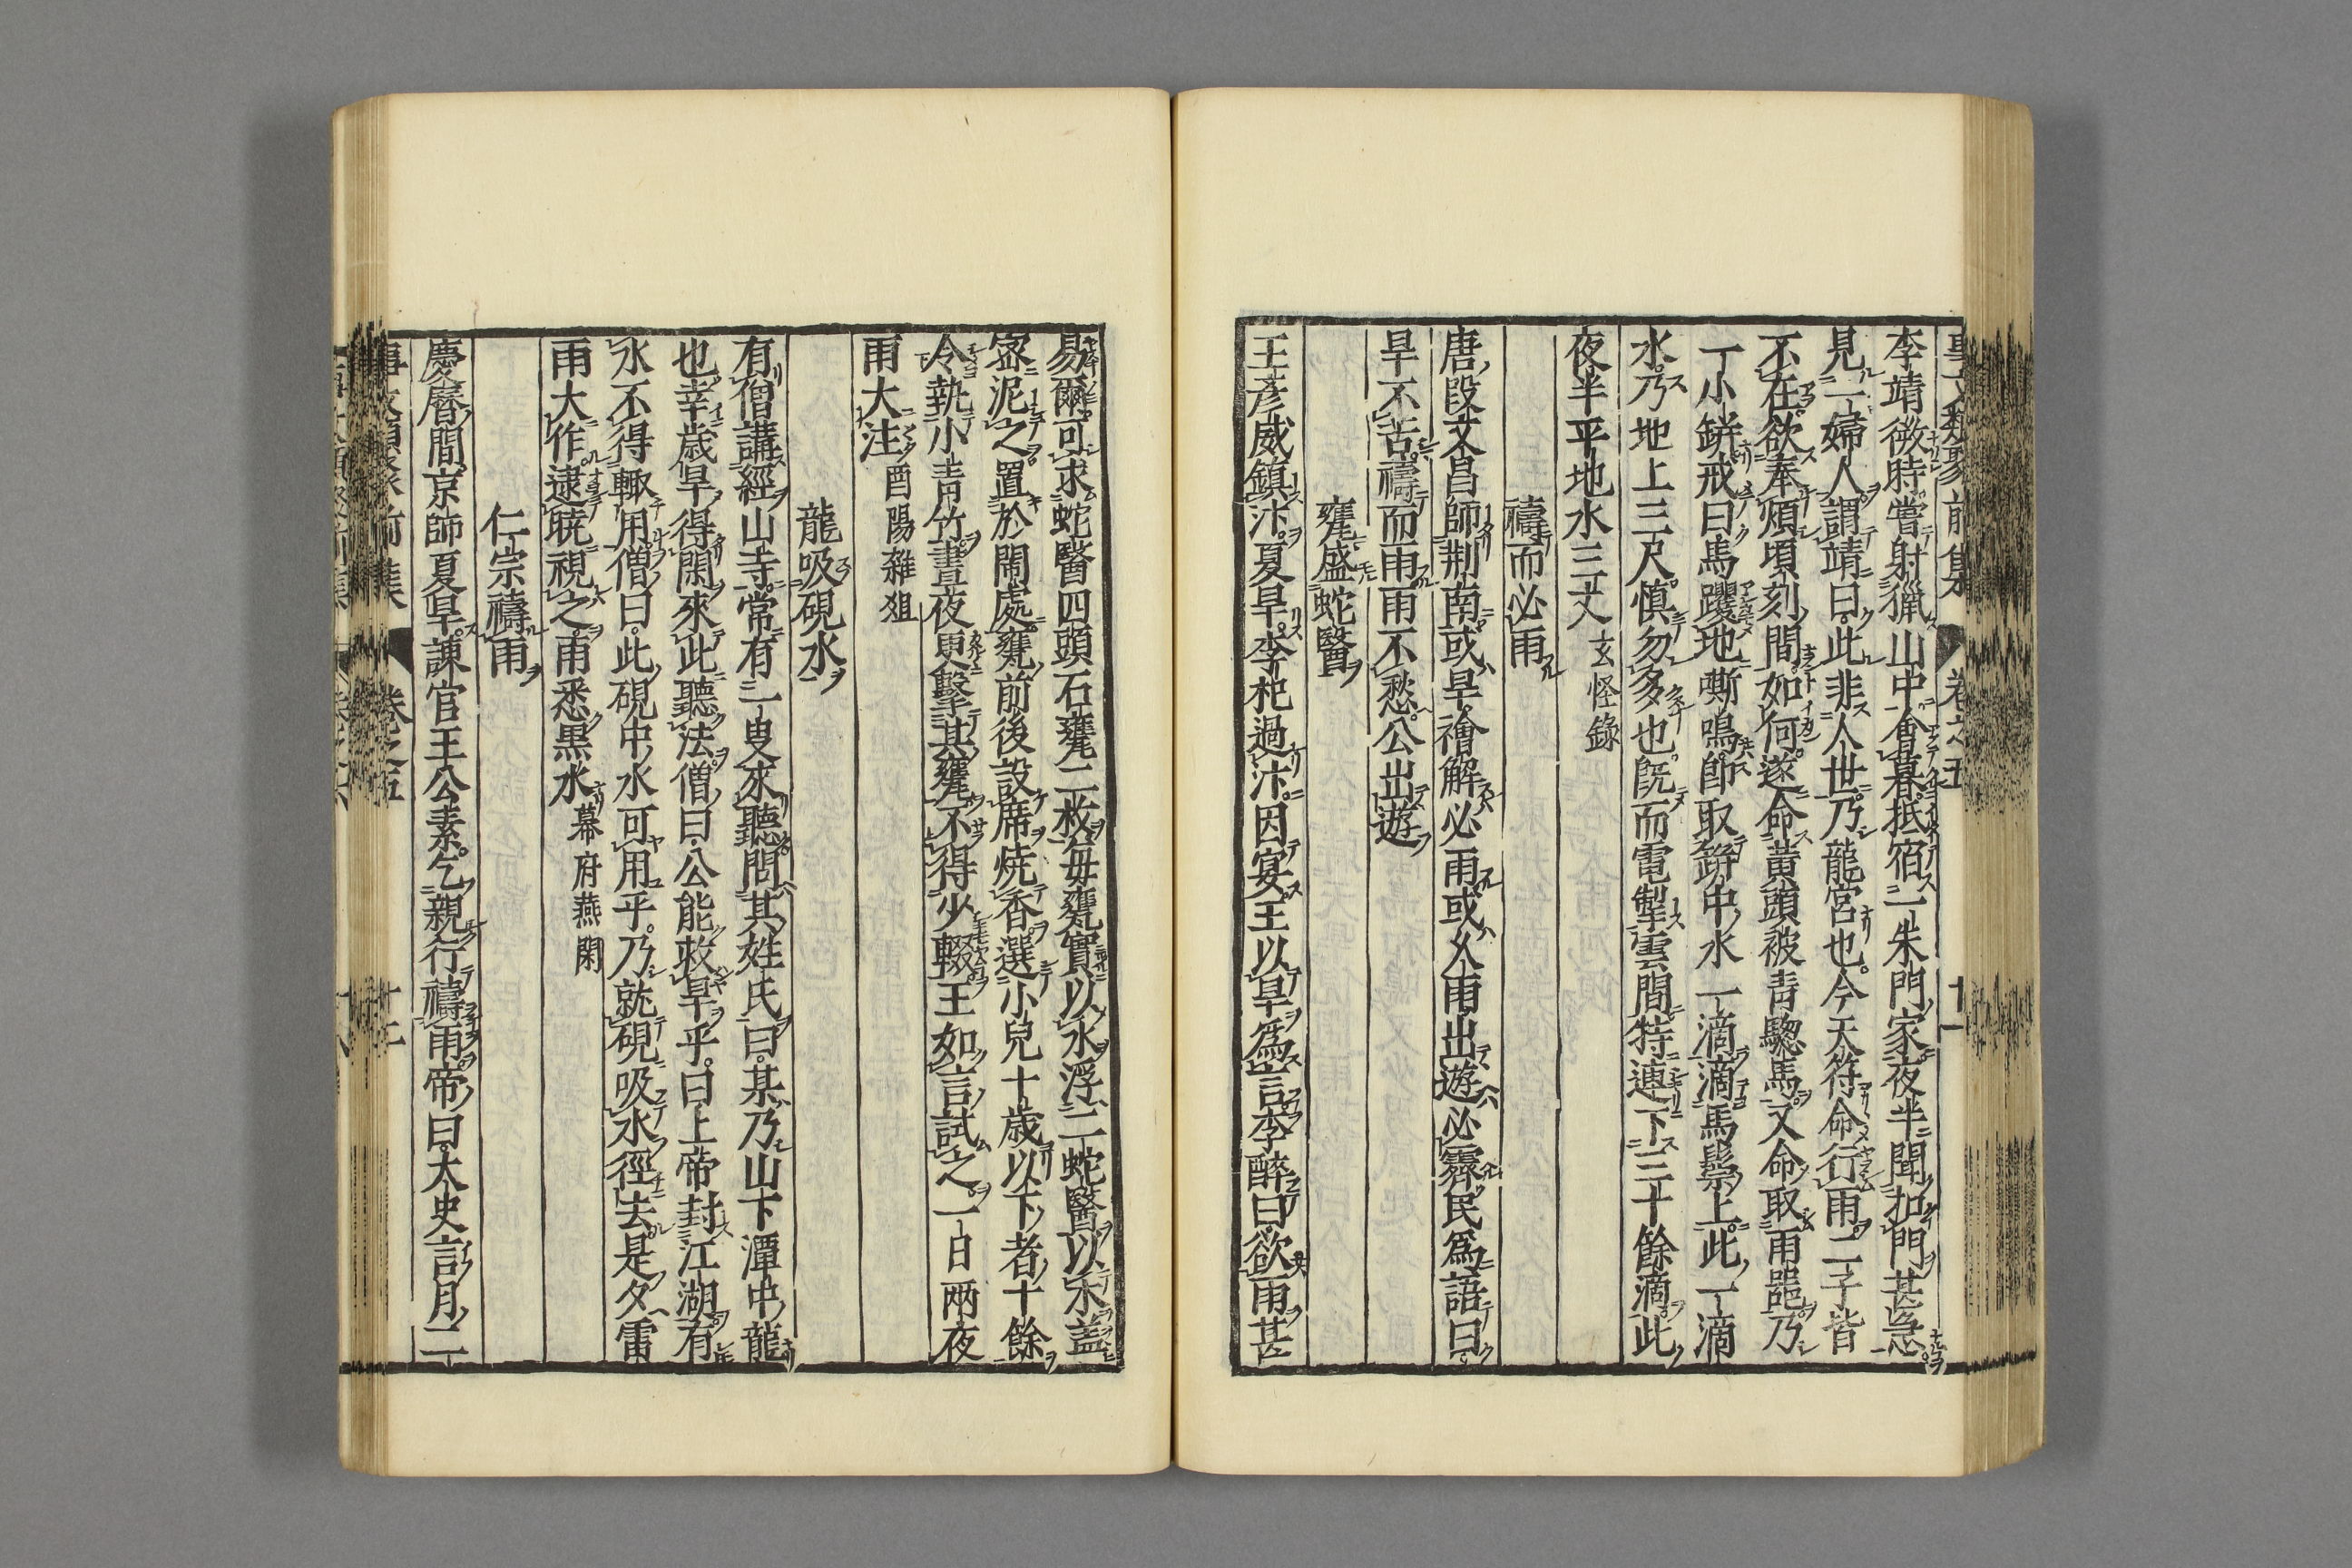 事文類聚前集 卷之五 十一
李靖微時嘗射獵山中會暮抵宿一朱門家夜半聞扣門甚急
見一婦人謂靖曰此非人世乃龍宮也今天符命行雨二子皆
不在欲奉煩頃刻間如何遂命黃頭被青驄馬又命取雨器乃
一小缾戒曰馬躩地嘶鳴卽取缾中水一滴滴馬鬃上此一滴
水乃地上三尺慎勿多也旣而電掣雲間特連下三十餘滴此
夜半平地水三丈 玄怪錄
禱而必雨
唐段文昌師荆南或旱禬解必雨或久雨出遊必霽民爲語曰
旱不苦禱而雨雨不愁公出遊
甕盛蛇醫
王彥威鎮汴夏旱李杞過汴因宴王以旱爲言李醉曰欲雨甚
易爾可求蛇醫四頭石甕二枚每甕實以水浮二蛇醫以木蓋
密泥之置於鬧處甕前後設席燒香選小兒十歲以下者十餘
令執小青竹晝夜更擊其甕不得少輟王如言試之一日兩夜
雨大注 酉陽雜俎
龍吸硯水
有僧講經山寺常有一叟來聽問其姓氏曰某乃山下潭中龍
也幸歲旱得閑來此聽法僧曰公能救旱乎曰上帝封江湖有
水不得輙用僧曰此硯中水可用乎乃就硯吸水徑去是夕雷
雨大作逮曉視之雨悉黑水 幕府燕閑
仁宗禱雨
慶曆間京師夏旱諫官王公素乞親行禱雨帝曰太史言月二
事文類聚前集 卷之五 十二